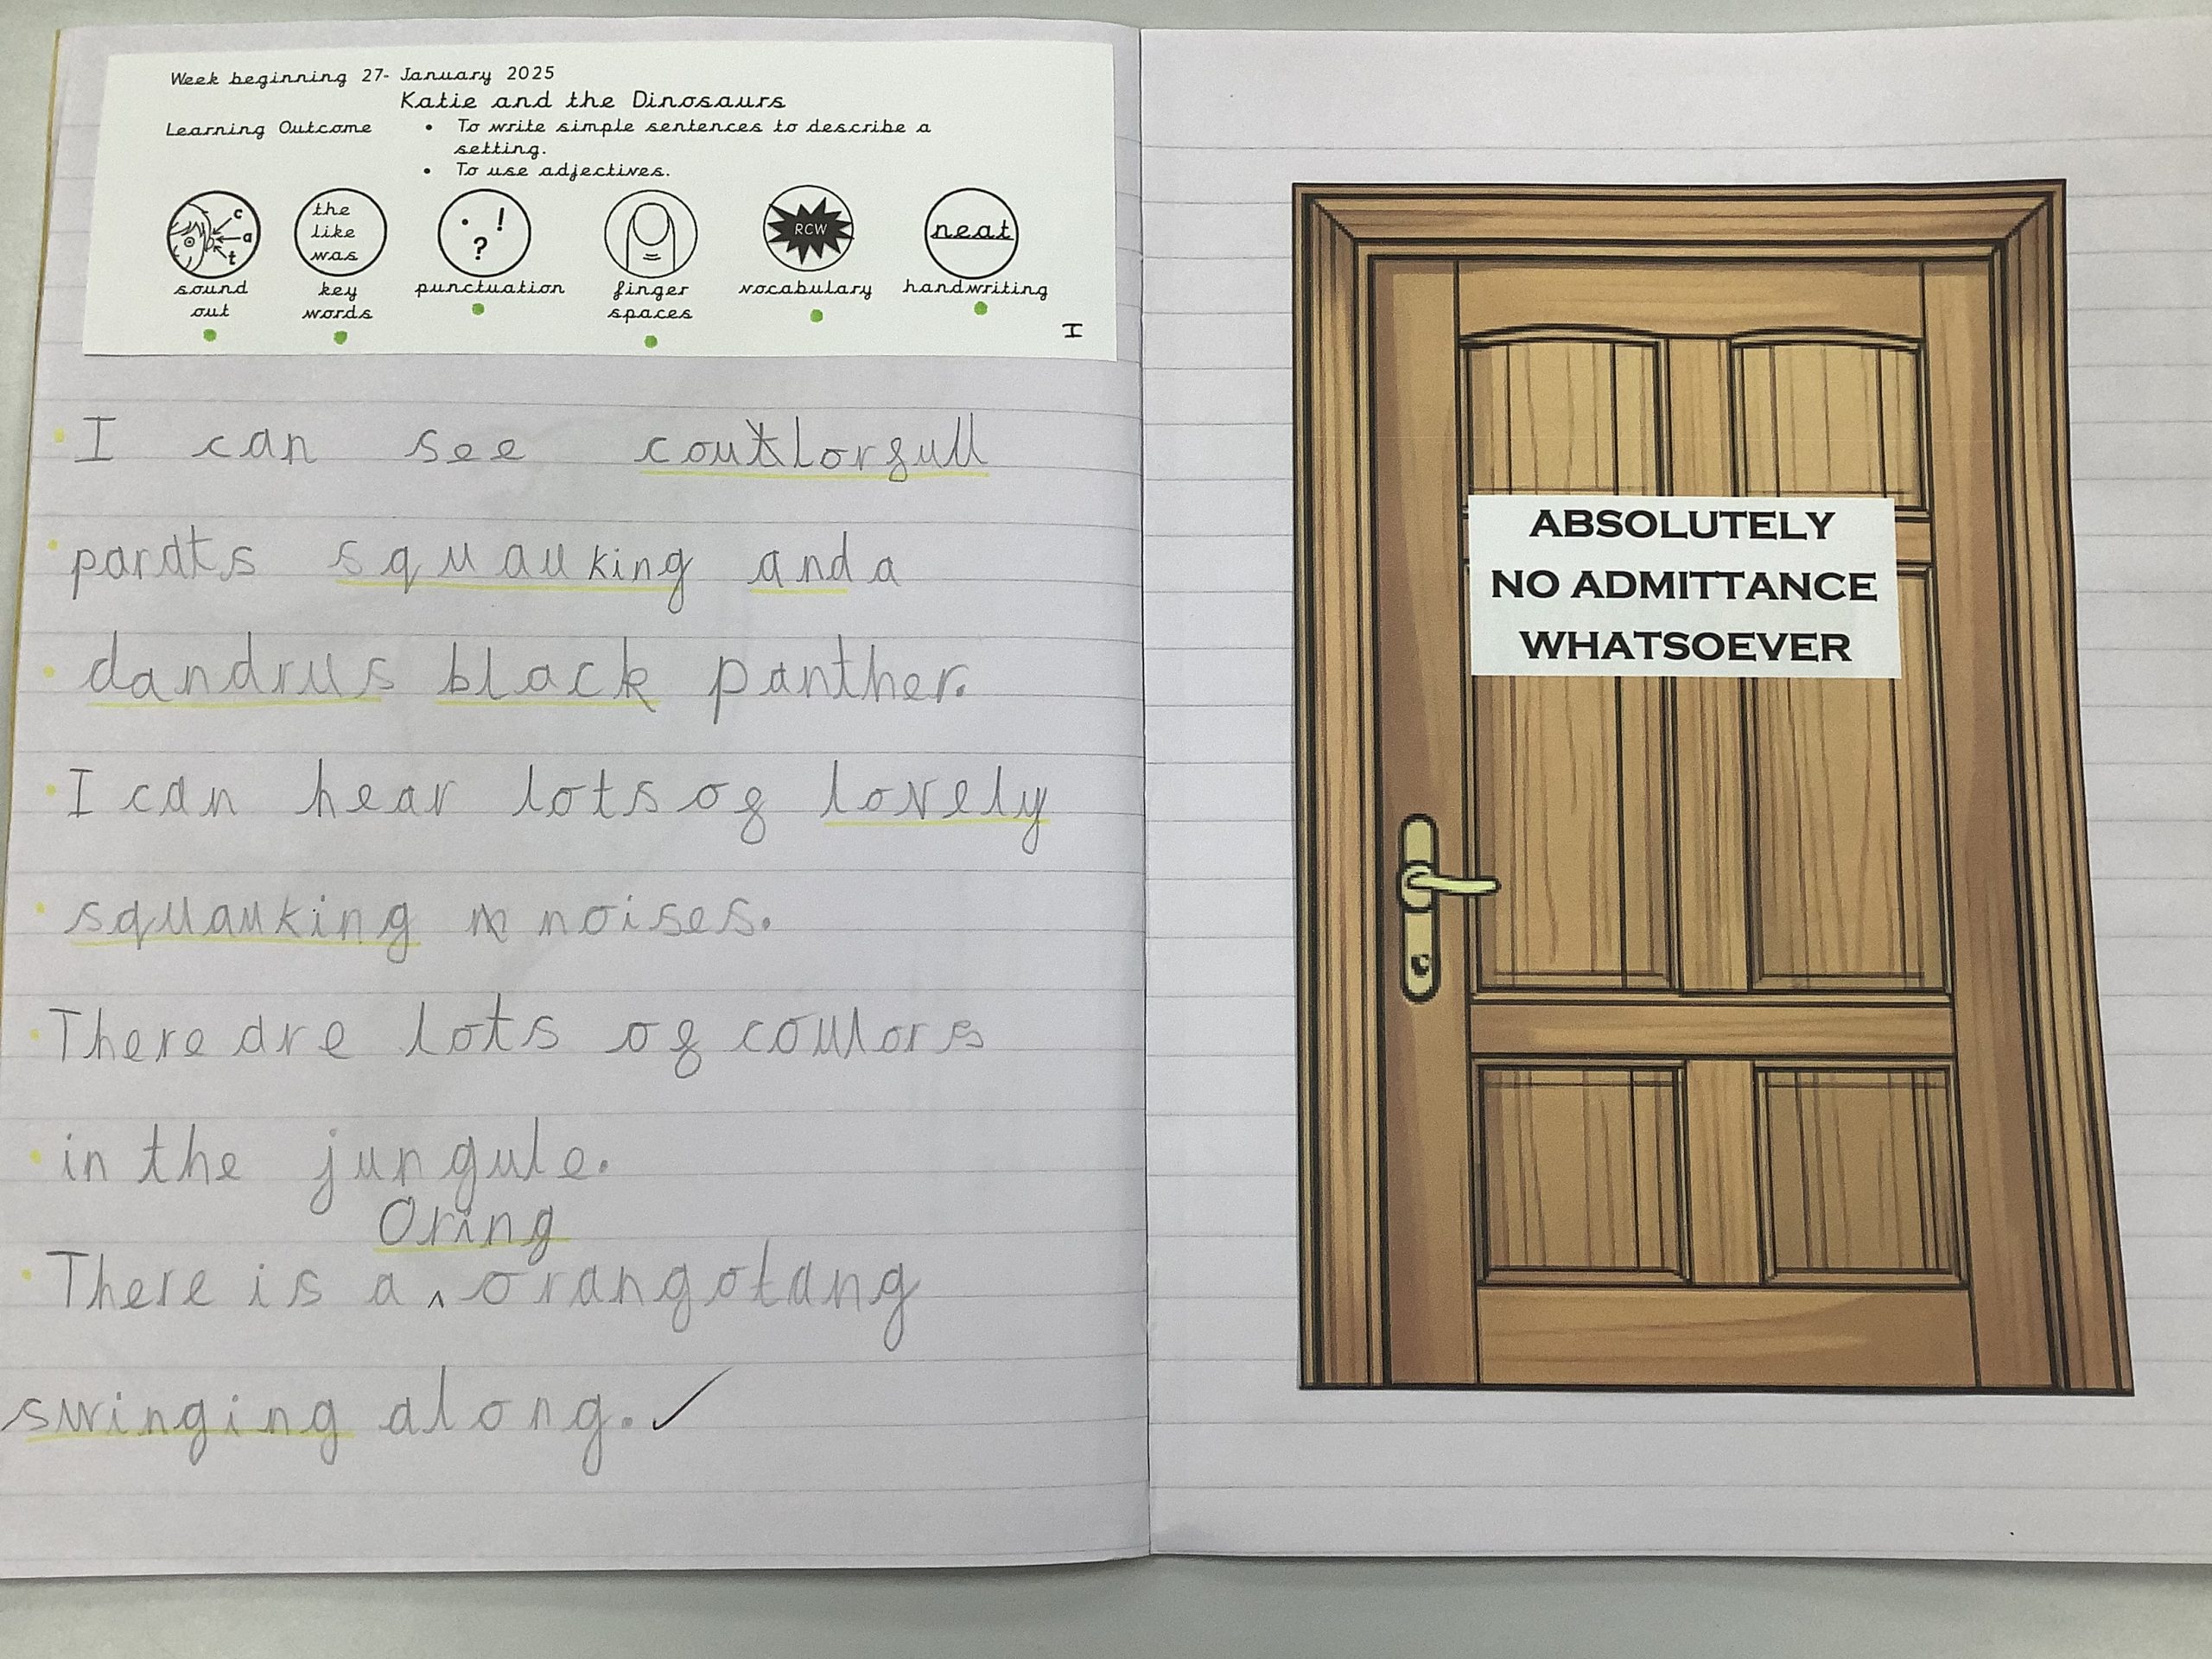 Week beginning 27- January 2025
Katie and the Dinosaurs
Learning Outcome
• To write simple sentences to describe a
setting.
• To use adjectives.
c
a
t
the
like
was
. !
?
RCW
neat
sound
out
key
words
punctuation
finger
spaces
vocabulary
handwriting
I
I can see coutlorfull
parots squauking and a
dandrus black panther.
I can hear lots of lovely
squauking noises.
There are lots of coulors
in the jungule.
Oring
There is a ^ orangotang
swinging along. ✓
ABSOLUTELY
NO ADMITTANCE
WHATSOEVER